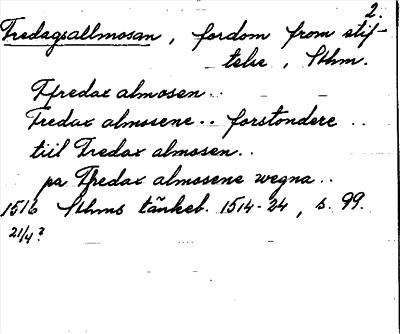 2.
Fredagsallmosan, fordom from stif-
telse, Sthm.
Ffredax almosen..
Fredax almosene.. forstondere ..
tiil Fredax almosen..
pa Ffredax almosene wegna..
1516 Sthms tänkeb. 1514-24, s. 99.
21/4?